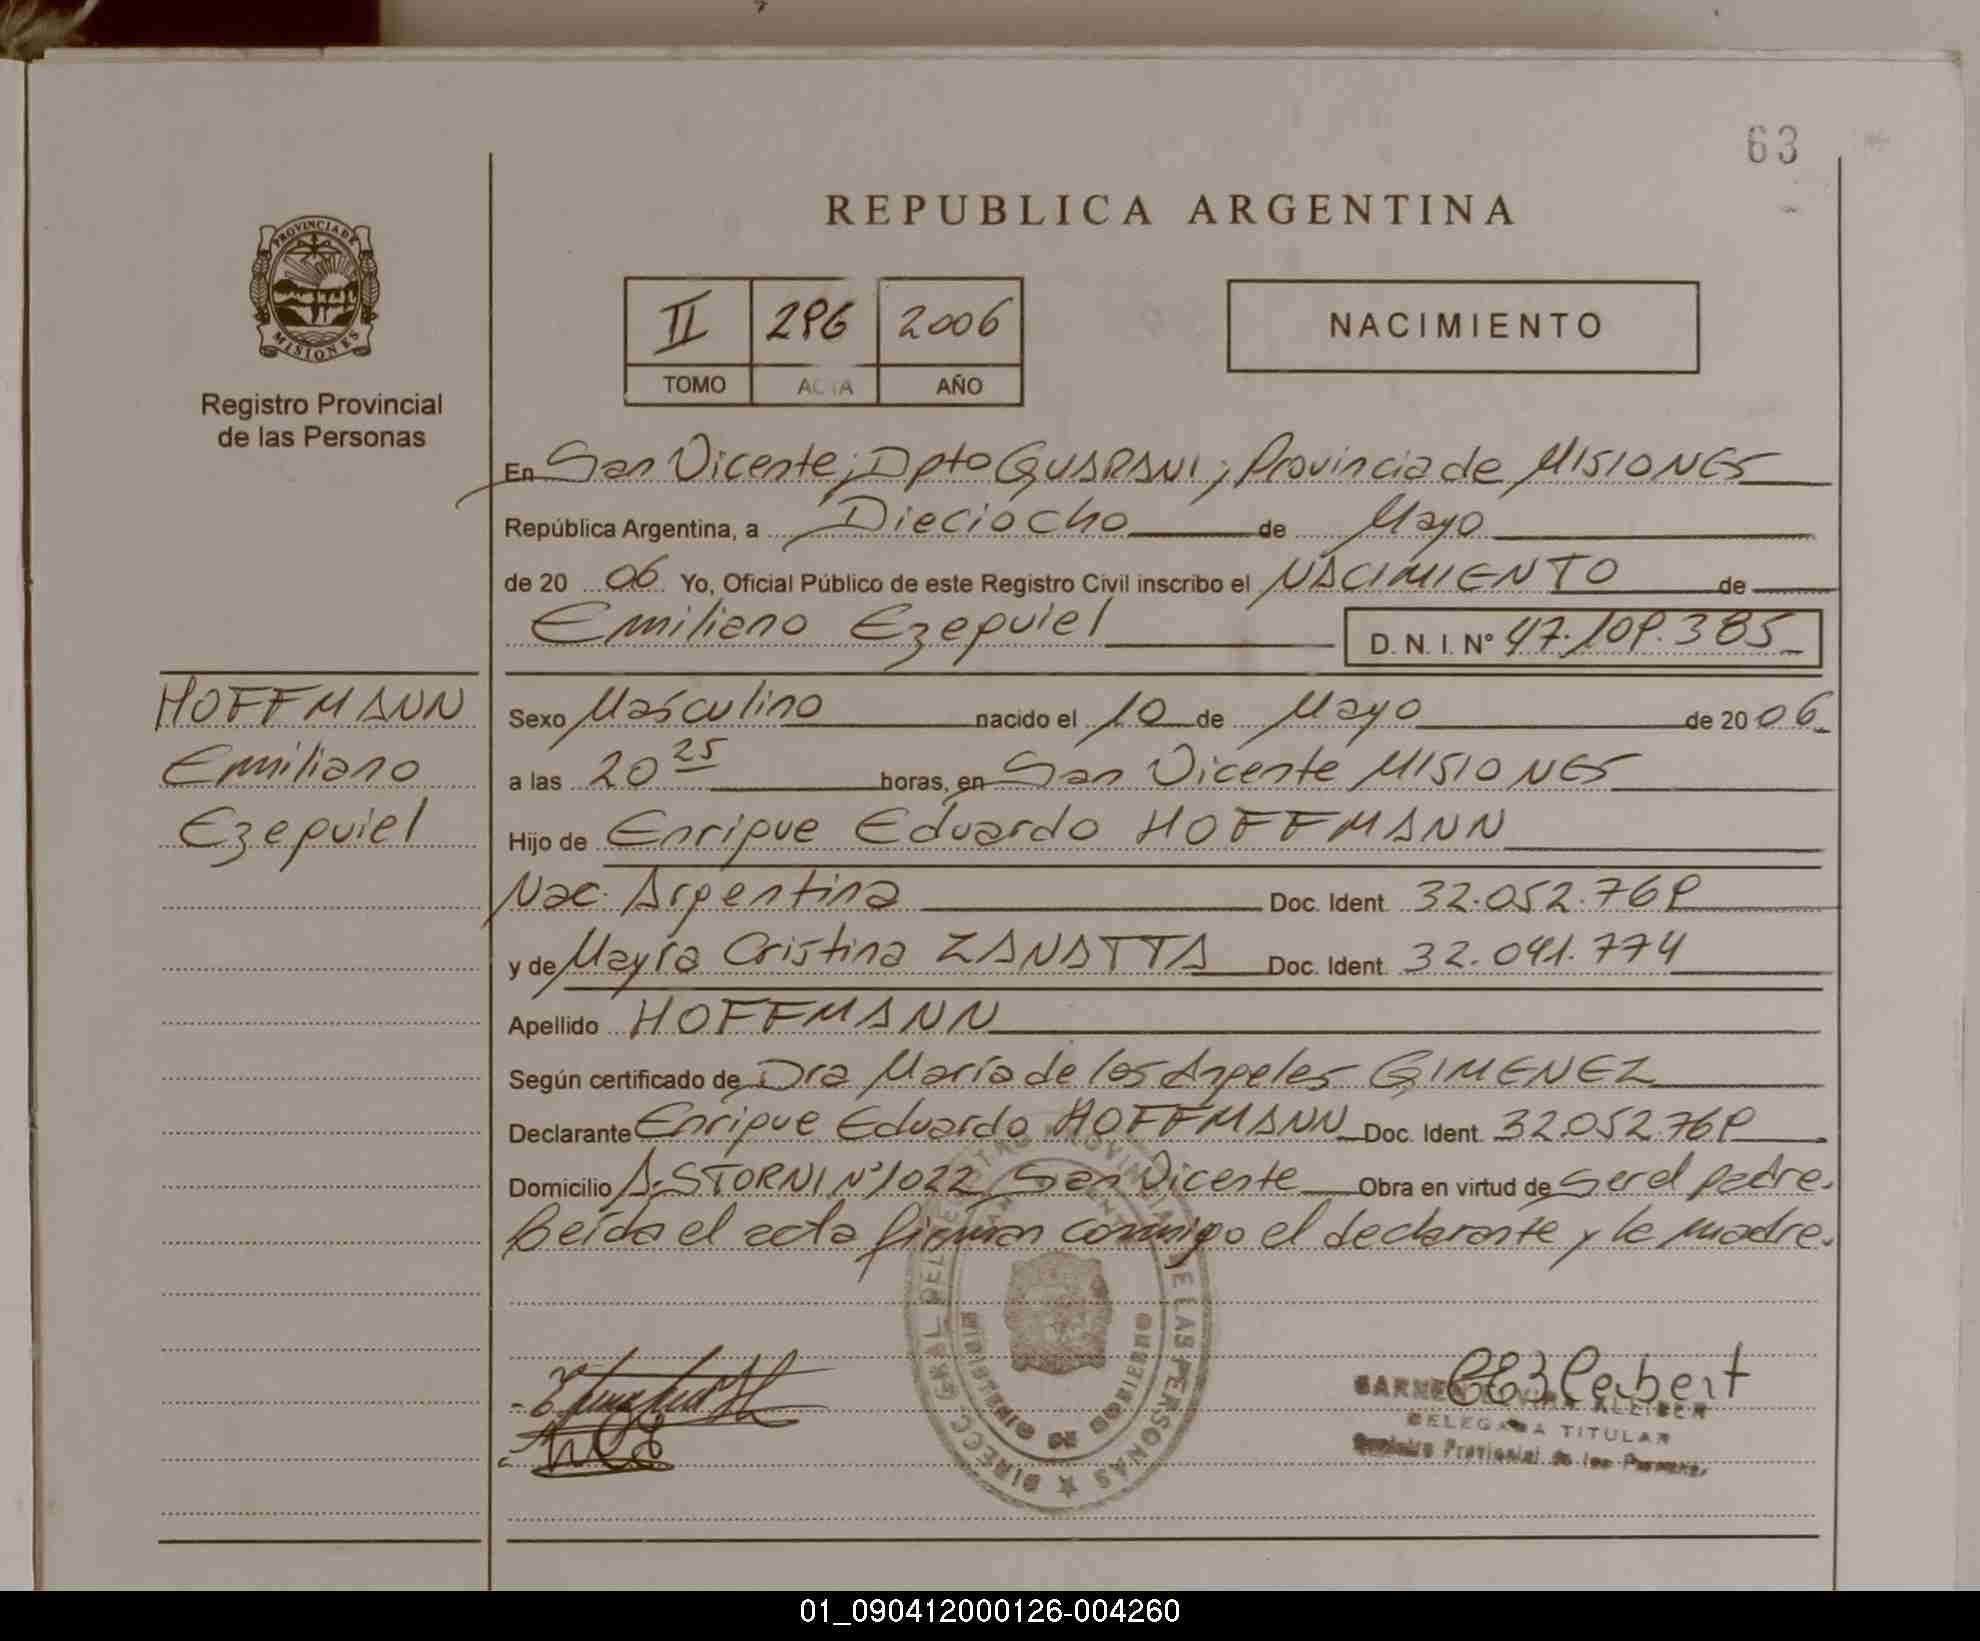 63
REPUBLICA ARGENTINA
PROVINCIA DE
MISIONES
Registro Provincial
de las Personas
II 296 2006
TOMO ACTA AÑO
NACIMIENTO
En San Vicente; Dpto GUARANI; Provincia de MISIONES
República Argentina, a Dieciocho de Mayo
de 20 06 Yo, Oficial Público de este Registro Civil inscribo el NACIMIENTO de
Emiliano Ezequiel D. N. I. N° 47.109.385
HOFFMANN
Emiliano
Ezequiel
Sexo Masculino nacido el 10 de Mayo de 20 06
a las 20 25 horas, en San Vicente MISIONES
Hijo de Enrique Eduardo HOFFMANN
Nac. Argentina Doc. Ident. 32.052.769
y de Mayra Cristina ZANATTA Doc. Ident. 32.041.774
Apellido HOFFMANN
Según certificado de Dra María de los Angeles GIMENEZ
Declarante Enrique Eduardo HOFFMANN Doc. Ident. 32.052.769
Domicilio A. STORNI N° 1022 San Vicente Obra en virtud de ser el padre.
Leída el acta firman conmigo el declarante y la madre.
DIRECC. GRAL. DEL REGISTRO PROVINCIAL DE LAS PERSONAS
MINISTERIO DE GOBIERNO
DELEGADA TITULAR
Registro Provincial de las Personas
01_090412000126-004260